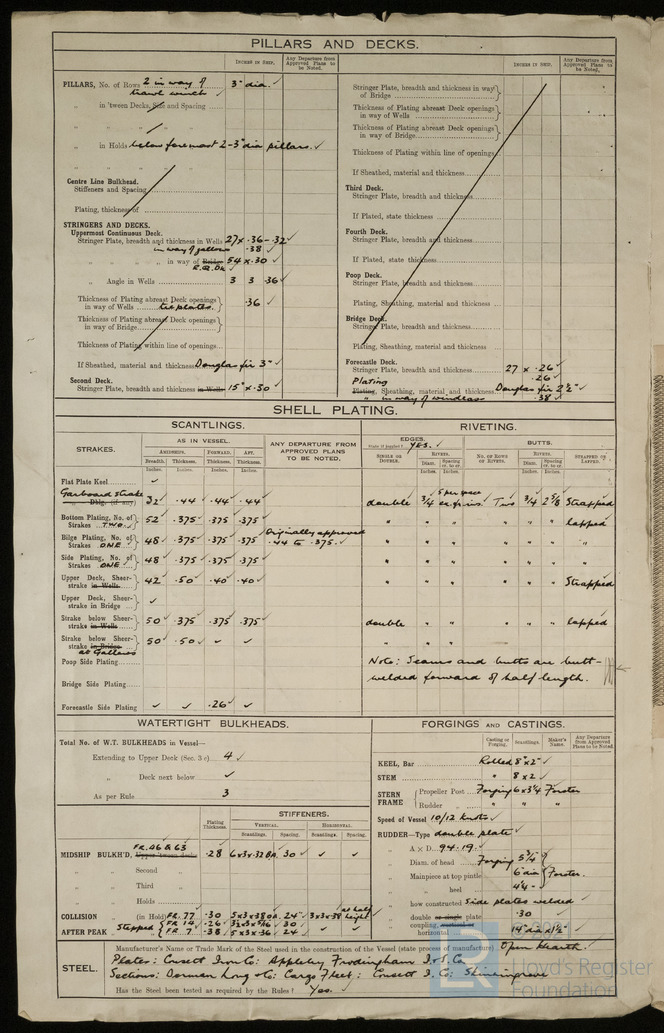 PILLARS AND DECKS.
INCHES IN SHIP.
Any Departure from Approved Plans to be Noted.
PILLARS, No. of Rows 2 in way of trawl winch 3" dia.
„ in 'tween Decks, Size and Spacing
„ „
„ in Holds below foremast 2-3" dia pillars.
„ „
Centre Line Bulkhead.
Stiffeners and Spacing
Plating, thickness of
STRINGERS AND DECKS.
Uppermost Continuous Deck.
Stringer Plate, breadth and thickness in Wells 27 x .36-.32
in way of gallows .38
„ „ „ in way of Bridge R.Q.Dk 54 x .30
„ Angle in Wells 3 3 .36
Thickness of Plating abreast Deck openings in way of Wells tie plates. .36
Thickness of Plating abreast Deck openings in way of Bridge
Thickness of Plating within line of openings
If Sheathed, material and thickness Douglas fir 3"
Second Deck.
Stringer Plate, breadth and thickness in Wells 15" x .30
INCHES IN SHIP.
Any Departure from Approved Plans to be Noted.
Stringer Plate, breadth and thickness in way of Bridge
Thickness of Plating abreast Deck openings in way of Wells
Thickness of Plating abreast Deck openings in way of Bridge
Thickness of Plating within line of openings
If Sheathed, material and thickness
Third Deck.
Stringer Plate, breadth and thickness
If Plated, state thickness
Fourth Deck.
Stringer Plate, breadth and thickness
If Plated, state thickness
Poop Deck.
Stringer Plate, breadth and thickness
Plating, Sheathing, material and thickness
Bridge Deck.
Stringer Plate, breadth and thickness
Plating, Sheathing, material and thickness
Forecastle Deck.
Stringer Plate, breadth and thickness 27 x .26
Plating .26
Plating, Sheathing, material and thickness Douglas fir 2½"
„ in way of windlass .38
SHELL PLATING.
SCANTLINGS.
RIVETING.
STRAKES.
AS IN VESSEL.
AMIDSHIPS. FORWARD. AFT.
Breadth. Thickness. Thickness. Thickness.
Inches. Inches. Inches. Inches.
ANY DEPARTURE FROM APPROVED PLANS TO BE NOTED.
EDGES.
State if joggled? Yes.
BUTTS.
SINGLE OR DOUBLE.
RIVETS.
Diam. Spacing cr. to cr.
Inches. Inches.
NO. OF ROWS OF RIVETS.
RIVETS.
Diam. Spacing cr. to cr.
Inches. Inches.
STRAPPED OR LAPPED.
Flat Plate Keel
Garboard strake 32 .44 .44 .44 double ¾ 5 per space Two ¾ 2⅝ Strapped
Bottom Plating, No. of Strakes TWO 52 .375 .375 .375 „ „ „ „ „ „ lapped
Bilge Plating, No. of Strakes ONE 48 .375 .375 .375 Originally approved .44 to .375. „ „ „ „ „ „ „
Side Plating, No. of Strakes ONE 48 .375 .375 .375 „ „ „ „ „ „ „
Upper Deck, Sheerstrake in Wells 42 .50 .40 .40 „ „ „ Strapped
Upper Deck, Sheerstrake in Bridge
Strake below Sheerstrake in Wells 50 .375 .375 .375 double „ „ „ „ „ lapped
Strake below Sheerstrake in Bridge at Gallows 50 .50 „ „ „
Poop Side Plating
Bridge Side Plating
Forecastle Side Plating .26
Note: Seams and butts are butt-welded forward of half length.
WATERTIGHT BULKHEADS.
Total No. of W.T. BULKHEADS in Vessel—
Extending to Upper Deck (Sec. 3 c) 4
„ Deck next below
As per Rule 3
Plating Thickness.
STIFFENERS.
VERTICAL. HORIZONTAL.
Scantlings. Spacing. Scantlings. Spacing.
MIDSHIP BULKH'D, FR. 46 & 63 Upper 'tween decks .28 6x3x.32 BA 30
„ Second „
„ Third „
„ Holds
COLLISION „ (in Hold) FR. 77 .30 5x3x.38 OA 24" 3x3x.38 at half height
AFTER PEAK „ Stepped FR 14 .26 30
FR. 7 .38 5x3x.36 24
FORGINGS AND CASTINGS.
Casting or Forging. Scantlings. Maker's Name. Any Departure from Approved Plans to be Noted.
KEEL, Bar Rolled 8"x2"
STEM „ 8x2
STERN FRAME Propeller Post Forging 6x3¼ Forster
Rudder „ „ „ „
Speed of Vessel 10/12 knots
RUDDER—Type double plate
„ A x D 94.19.
„ Diam. of head Forging 5¾
„ Mainpiece at top pintle 6" dia Forster.
„ „ heel 4¼
„ how constructed Side plates welded
„ double or single plate .30
„ coupling, vertical or horizontal 14" dia x 1½"
STEEL.
Manufacturer's Name or Trade Mark of the Steel used in the construction of the Vessel (state process of manufacture) Open Hearth.
Plates: Consett Iron Co: Appleby Frodingham I.&S. Co
Sections: Dorman Long & Co: Cargo Fleet: Consett I. Co: Skinningrove
Has the Steel been tested as required by the Rules? Yes.
Lloyd's Register
Foundation